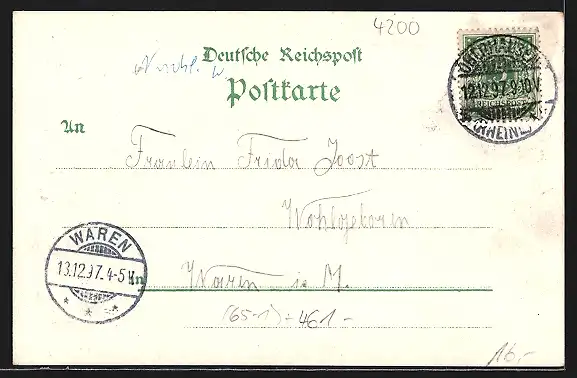 4200
Deutsche Reichspost
Postkarte
An
Fräulein Frida Joost
Wohlgeboren
in
Waren i. M.
(65-1) - 461 -
16,-
OBERHAUSEN
12.12.97. 9-10 V.
(RHEINL.)
REICHSPOST
WAREN
13.12.97. 4-5 N.